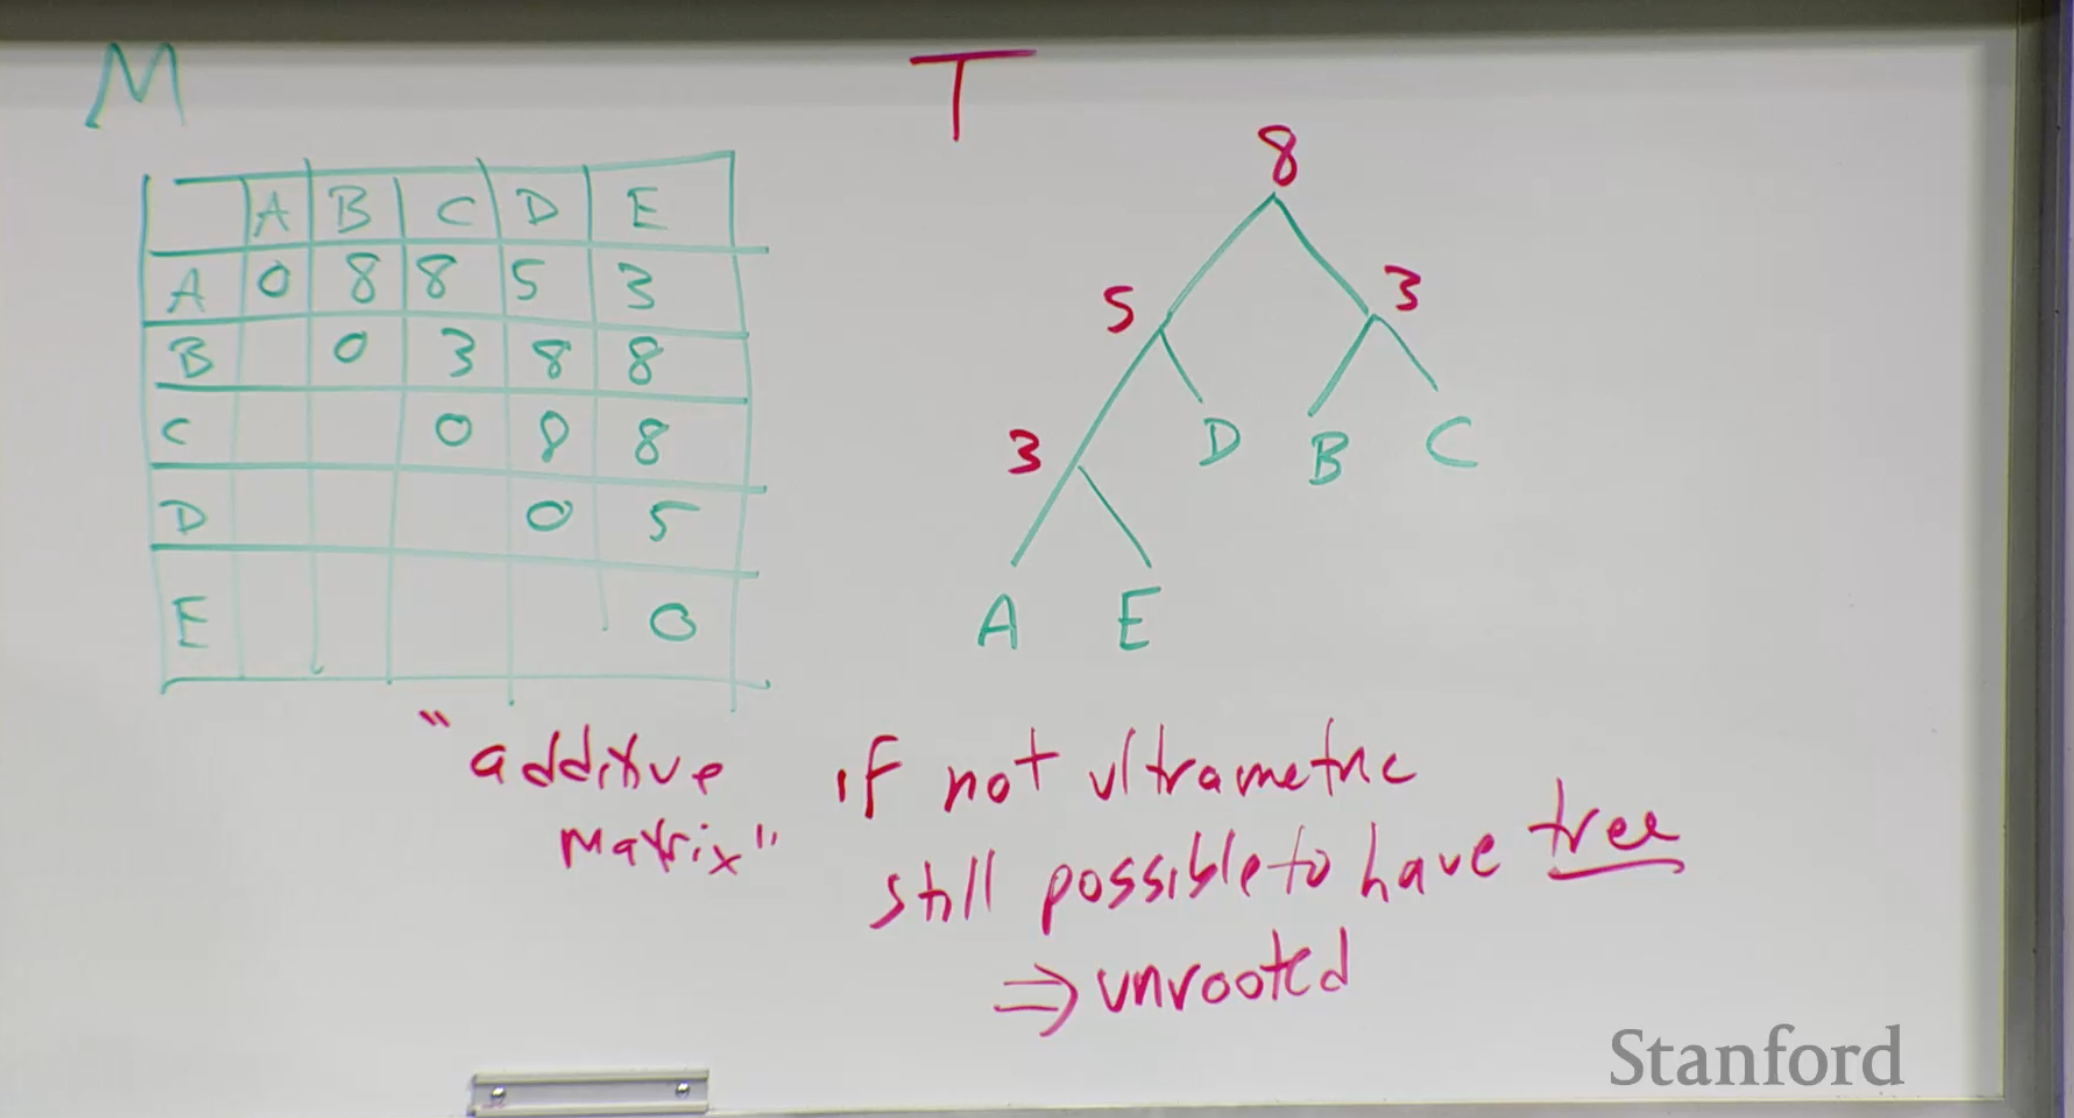 M
T
A B C D E
A 0 8 8 5 3
B 0 3 8 8
C 0 8 8
D 0 5
E 0
8
5 3
3 D B C
A E
"additive
matrix"
if not ultrametric
still possible to have tree
⇒ unrooted
Stanford